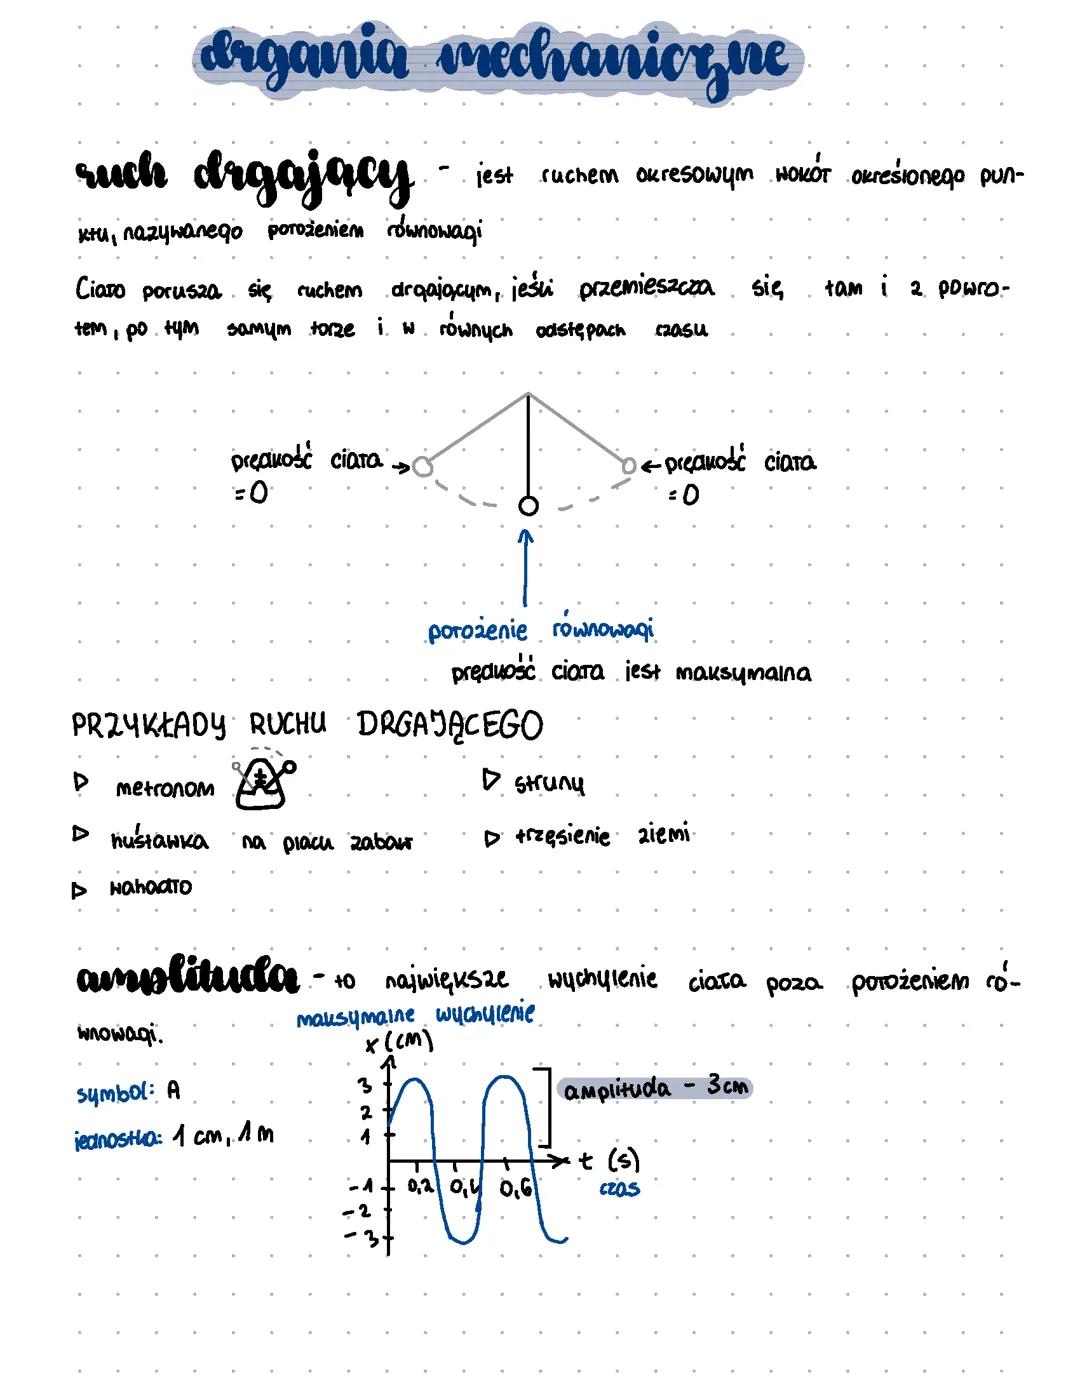 drgania mechaniczne
ruch drgający - jest ruchem okresowym wokół określonego pun-
ktu, nazywanego położeniem równowagi
Ciało porusza się ruchem drgającym, jeśli przemieszcza się tam i z powro-
tem, po tym samym torze i w równych odstępach czasu
prędkość ciała →
= 0
← prędkość ciała
= 0
położenie równowagi
prędkość ciała jest maksymalna
PRZYKŁADY RUCHU DRGAJĄCEGO
▷ metronom
▷ struny
▷ huśtawka na placu zabaw
▷ trzęsienie ziemi
▷ wahadło
amplituda - to największe wychylenie ciała poza położeniem ró-
wnowagi.
maksymalne wychylenie
x (cm)
symbol: A
jednostka: 1 cm, 1 m
3
2
1
-1
-2
-3
0,2 0,4 0,6
t (s)
czas
amplituda - 3 cm